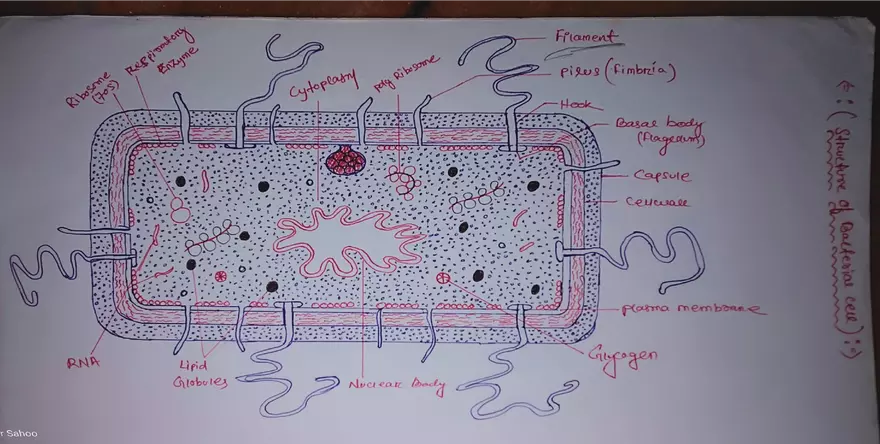 Filament
pilus (fimbria)
Hook
Basal body
(flagellum)
Capsule
Cellwall
plasma membrane
Glycogen
Nuclear Body
Lipid
Globules
RNA
Ribosome
(70s)
Respiratory
Enzyme
Cytoplasm
poly Ribosome
(Structure of Bacterial cell)
r Sahoo